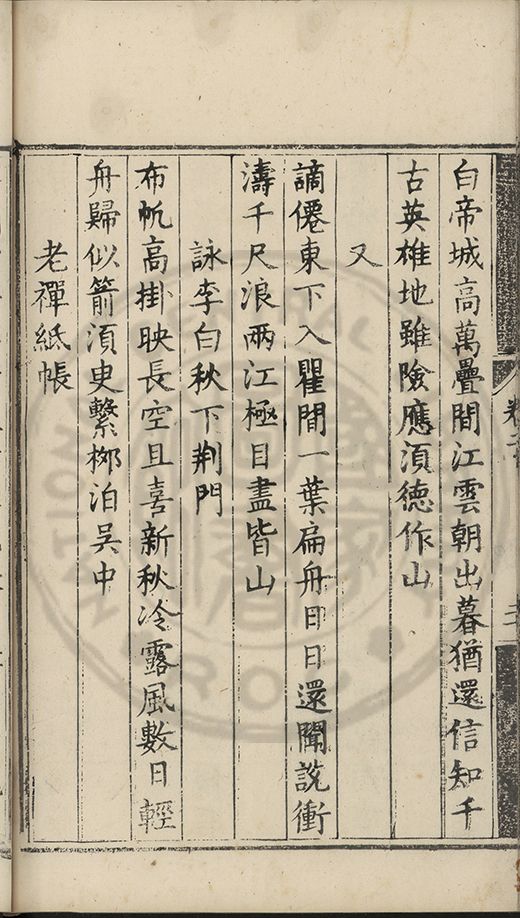 白帝城高萬疊間江雲朝出暮猶還信知千
古英雄地雖險應湏徳作山
又
謫僊東下入瞿間一葉扁舟日日還聞説衝
濤千尺浪兩江極目盡皆山
詠李白秋下荆門
布帆高掛映長空且喜新秋冷露風數日輕
舟歸似箭湏史繫梆泊吴中
老禪紙帳